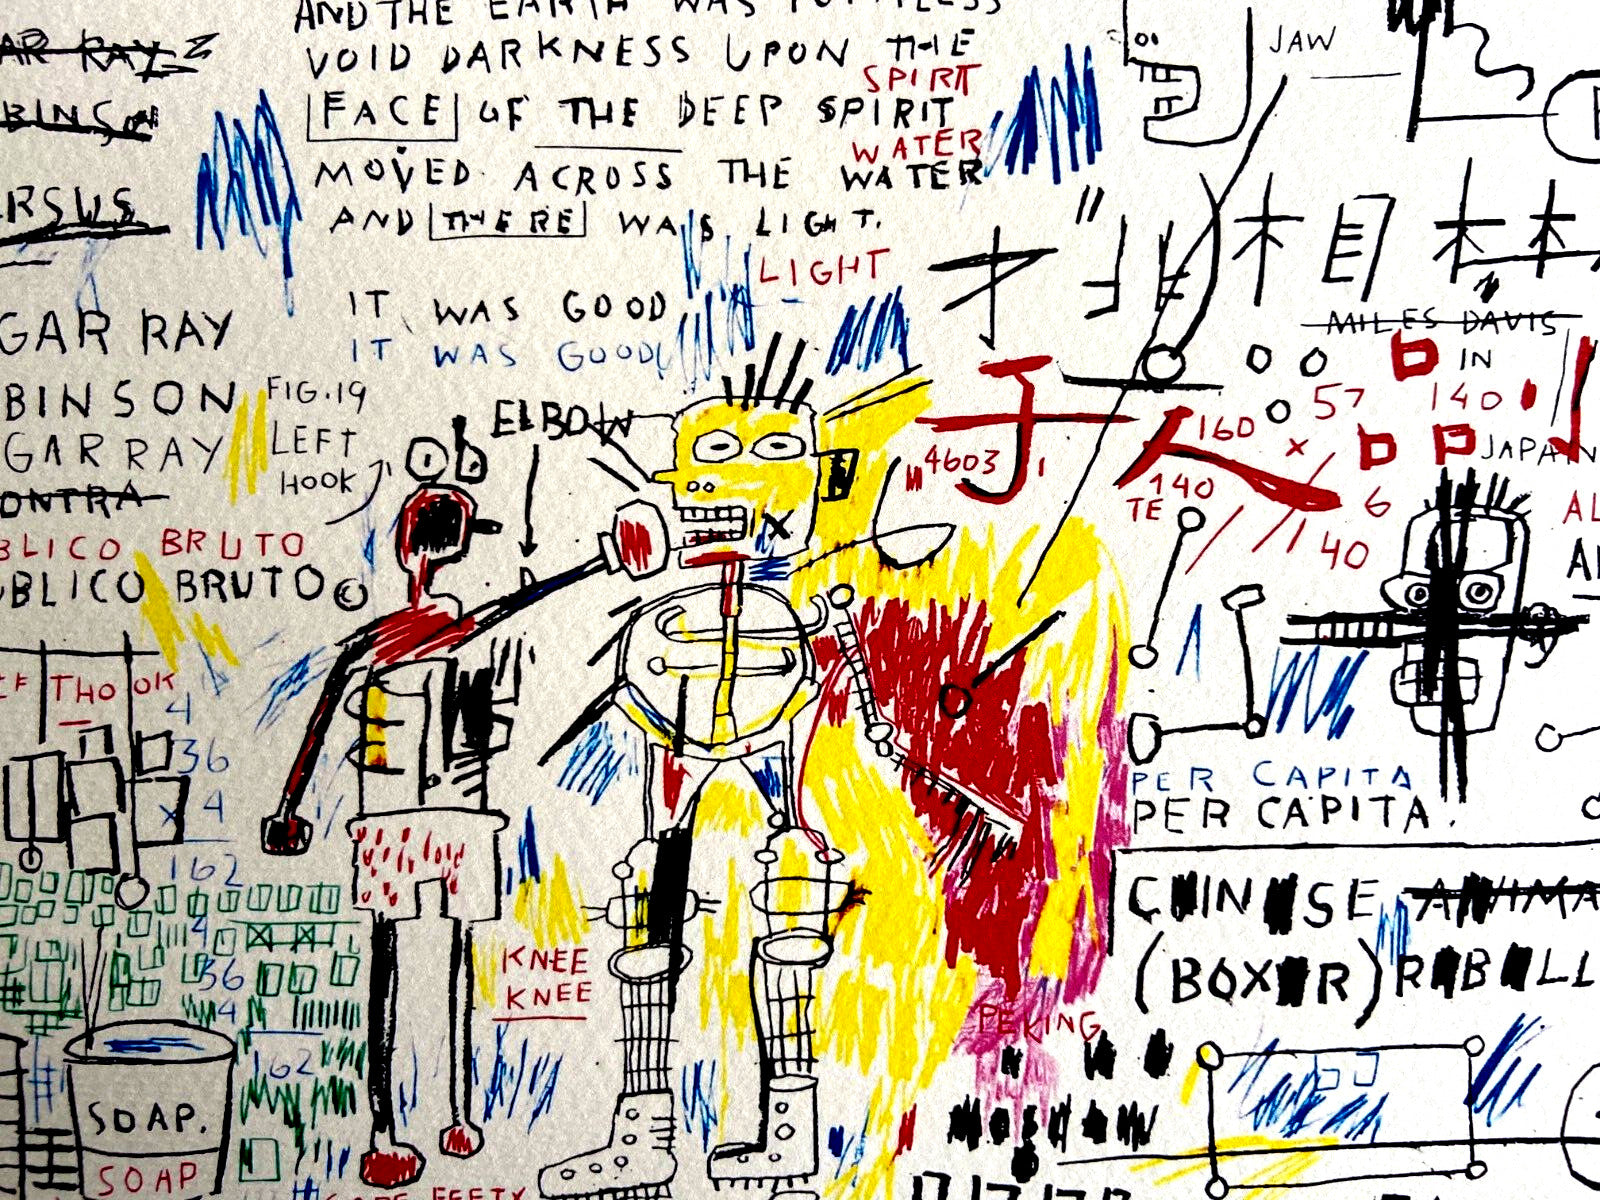 AND THE EARTH WAS FORMLESS
VOID DARKNESS UPON THE
SPIRIT
FACE OF THE DEEP SPIRIT
WATER
MOVED ACROSS THE WATER
AND THERE WAS LIGHT.
LIGHT
IT WAS GOOD
IT WAS GOOD
AR RAY
BINSON
ERSUS
GAR RAY
BINSON
GAR RAY
ONTRA
BLICO BRUTO
UBLICO BRUTO©
FIG.19
LEFT
HOOK
ELBOW
JAW
MILES DAVIS
IN
57
140
160
×
JAPAN
4603
140
TE
6
40
AL
THOOK
4
36
× 4
162
4
36
4
162
SOAP.
SOAP
KNEE
KNEE
PER CAPITA
PER CAPITA.
CHINESE ANIMA
(BOXER) REBELL
PEKING
FEET